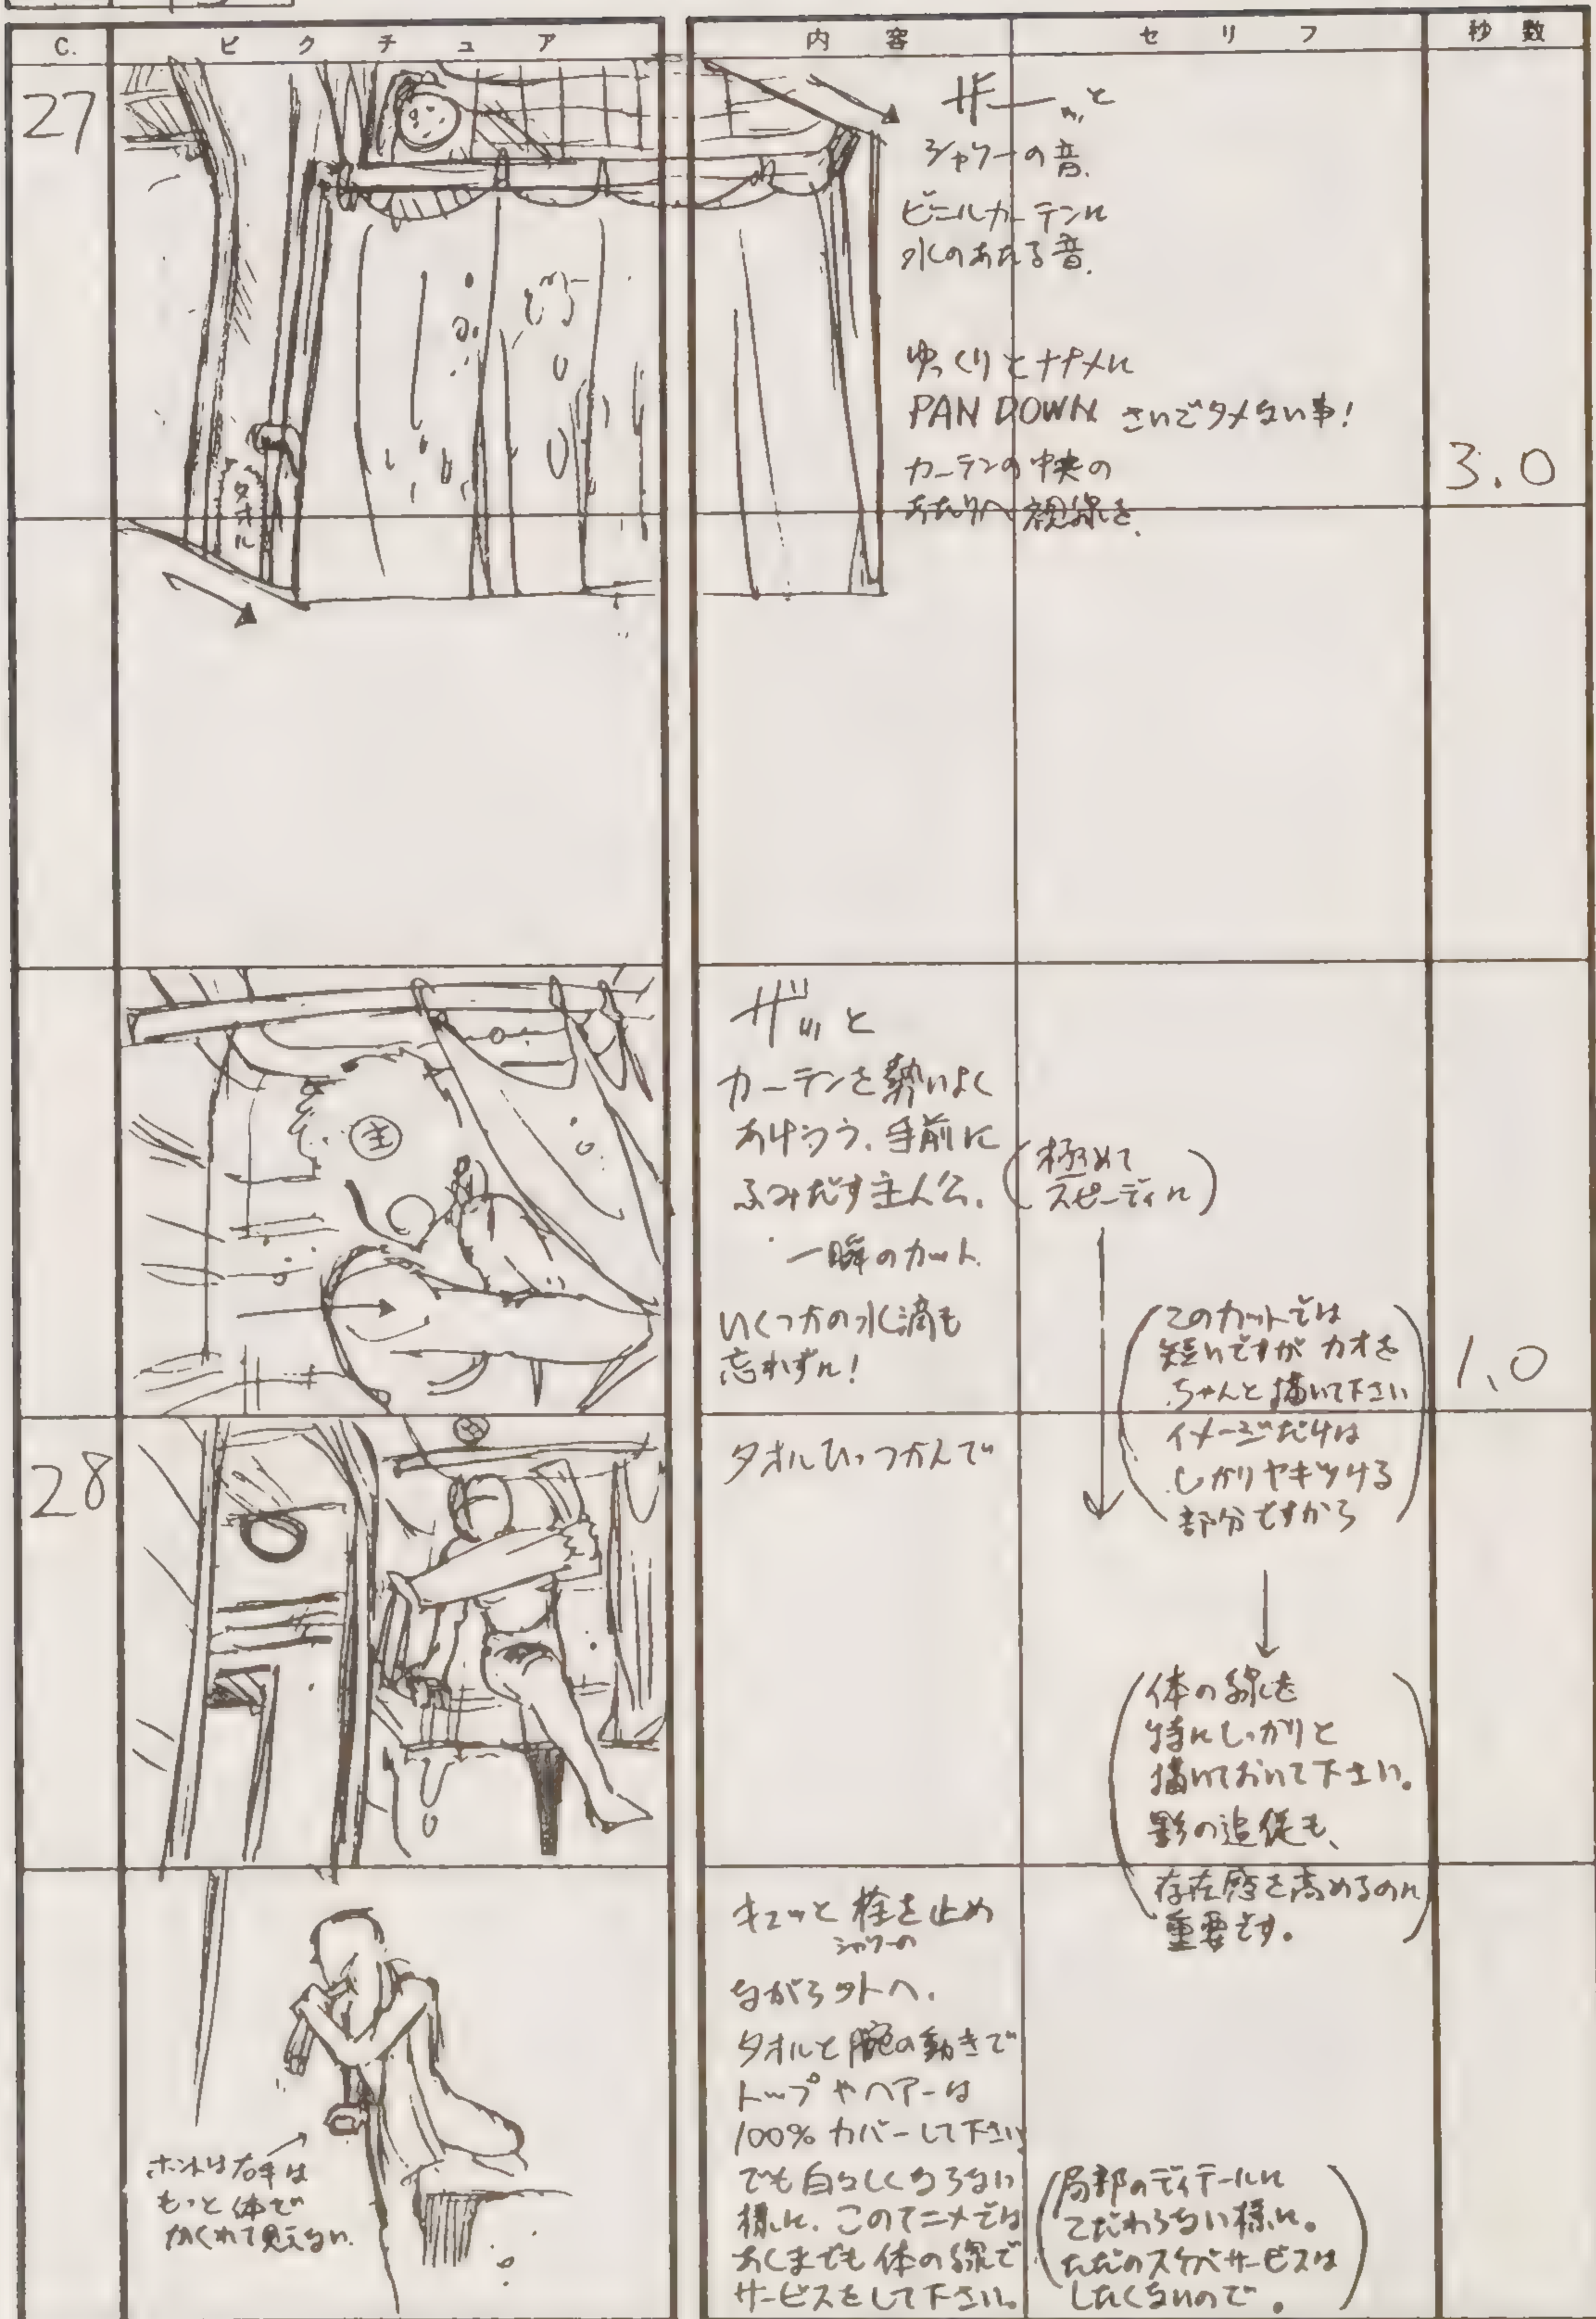 C.
ピクチュア
内容
セリフ
秒数
27
ザーーッと
シャワーの音.
ビニルカーテンに
水のあたる音.
ゆっくりとナナメに
PAN DOWN
カーテンの中央の
あたりへ視線を.
3.0
タオル
ザッと
カーテンを勢いよく
あけつつ、手前に
ふみだす主人公.
(極めて
スピーディに)
一瞬のカット.
いくつかの水滴も
忘れずに!
主
(このカットでは
短いですがカオを
ちゃんと描いて下さい
イメージだけは
しっかりヤキツける
部分ですから)
1.0
28
タオルひっつかんで
(体の線を
特にしっかりと
描いておいて下さい。
影の追従も、
存在感を高めるのに
重要です。)
キュッと栓を止め
シャワーの
ながら外へ.
タオルと腕の動きで
トップやヘアーは
100%カバーして下さい
でも白々しくならない
様に. このアニメでは
あくまでも体の線で
サービスをして下さい。
(局部のディテールに
こだわらない様に。
ただのスケベサービスは
したくないので。)
ホントは右手は
もっと体で
かくれて見えない.